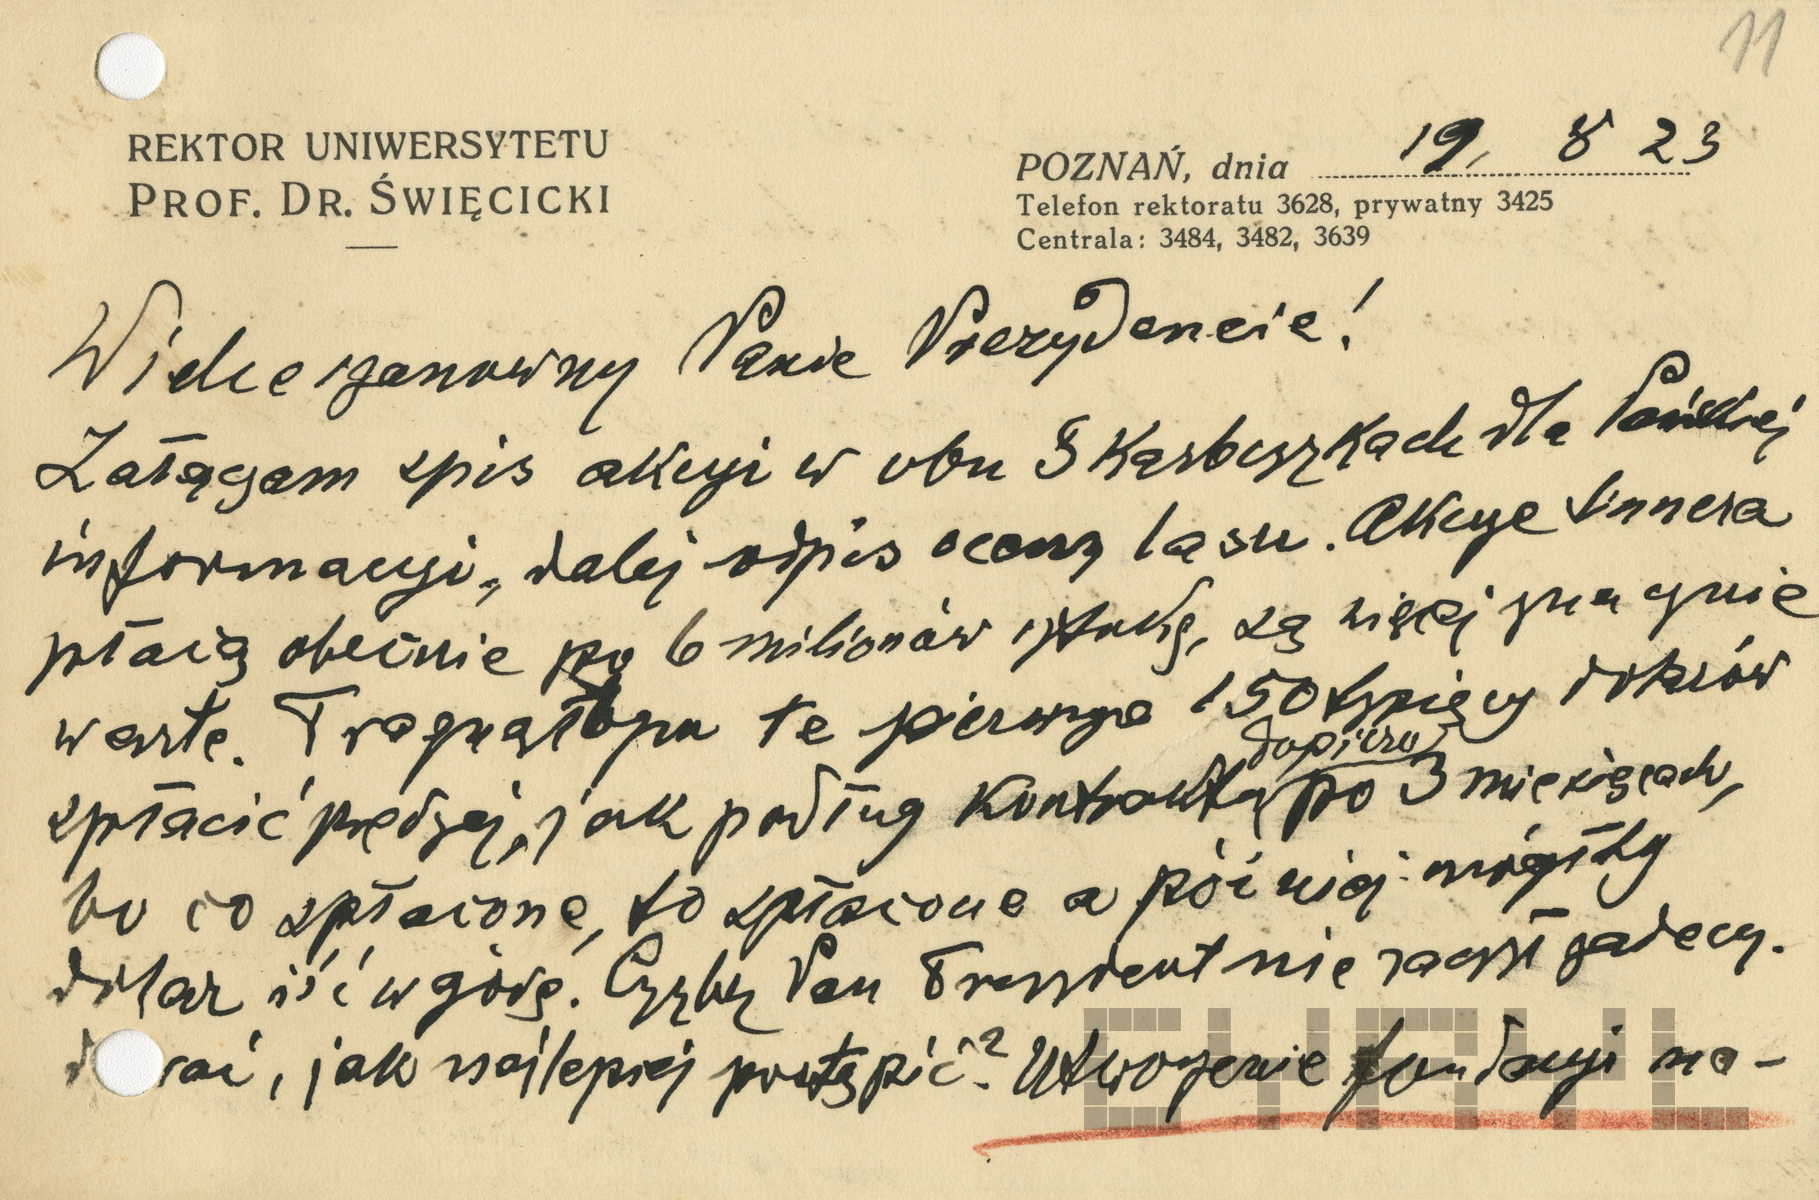 11
REKTOR UNIWERSYTETU
PROF. DR. ŚWIĘCICKI
POZNAŃ, dnia 19. 8 23
Telefon rektoratu 3628, prywatny 3425
Centrala: 3484, 3482, 3639
Wielce szanowny Panie Prezydencie!
Załączam spis akcyi w obu Skarbczykach dla Pańskiej
informacyi, dalej odpis oceny lasu. Akcye
płacią obecnie po 6 milionów sztukę, są więcej znacznie
warte. Trzebaby te pierwsze 150 tysięcy dolarów
dopiero
spłacić prędzej, jak podług kontraktu po 3 miesiącach,
bo co spłacone, to spłacone a później mógłby
dolar iść w górę. Czyby Pan Prezydent nie raczył zadecy-
jak najlepiej postąpić? Utworzenie fundacyi na-